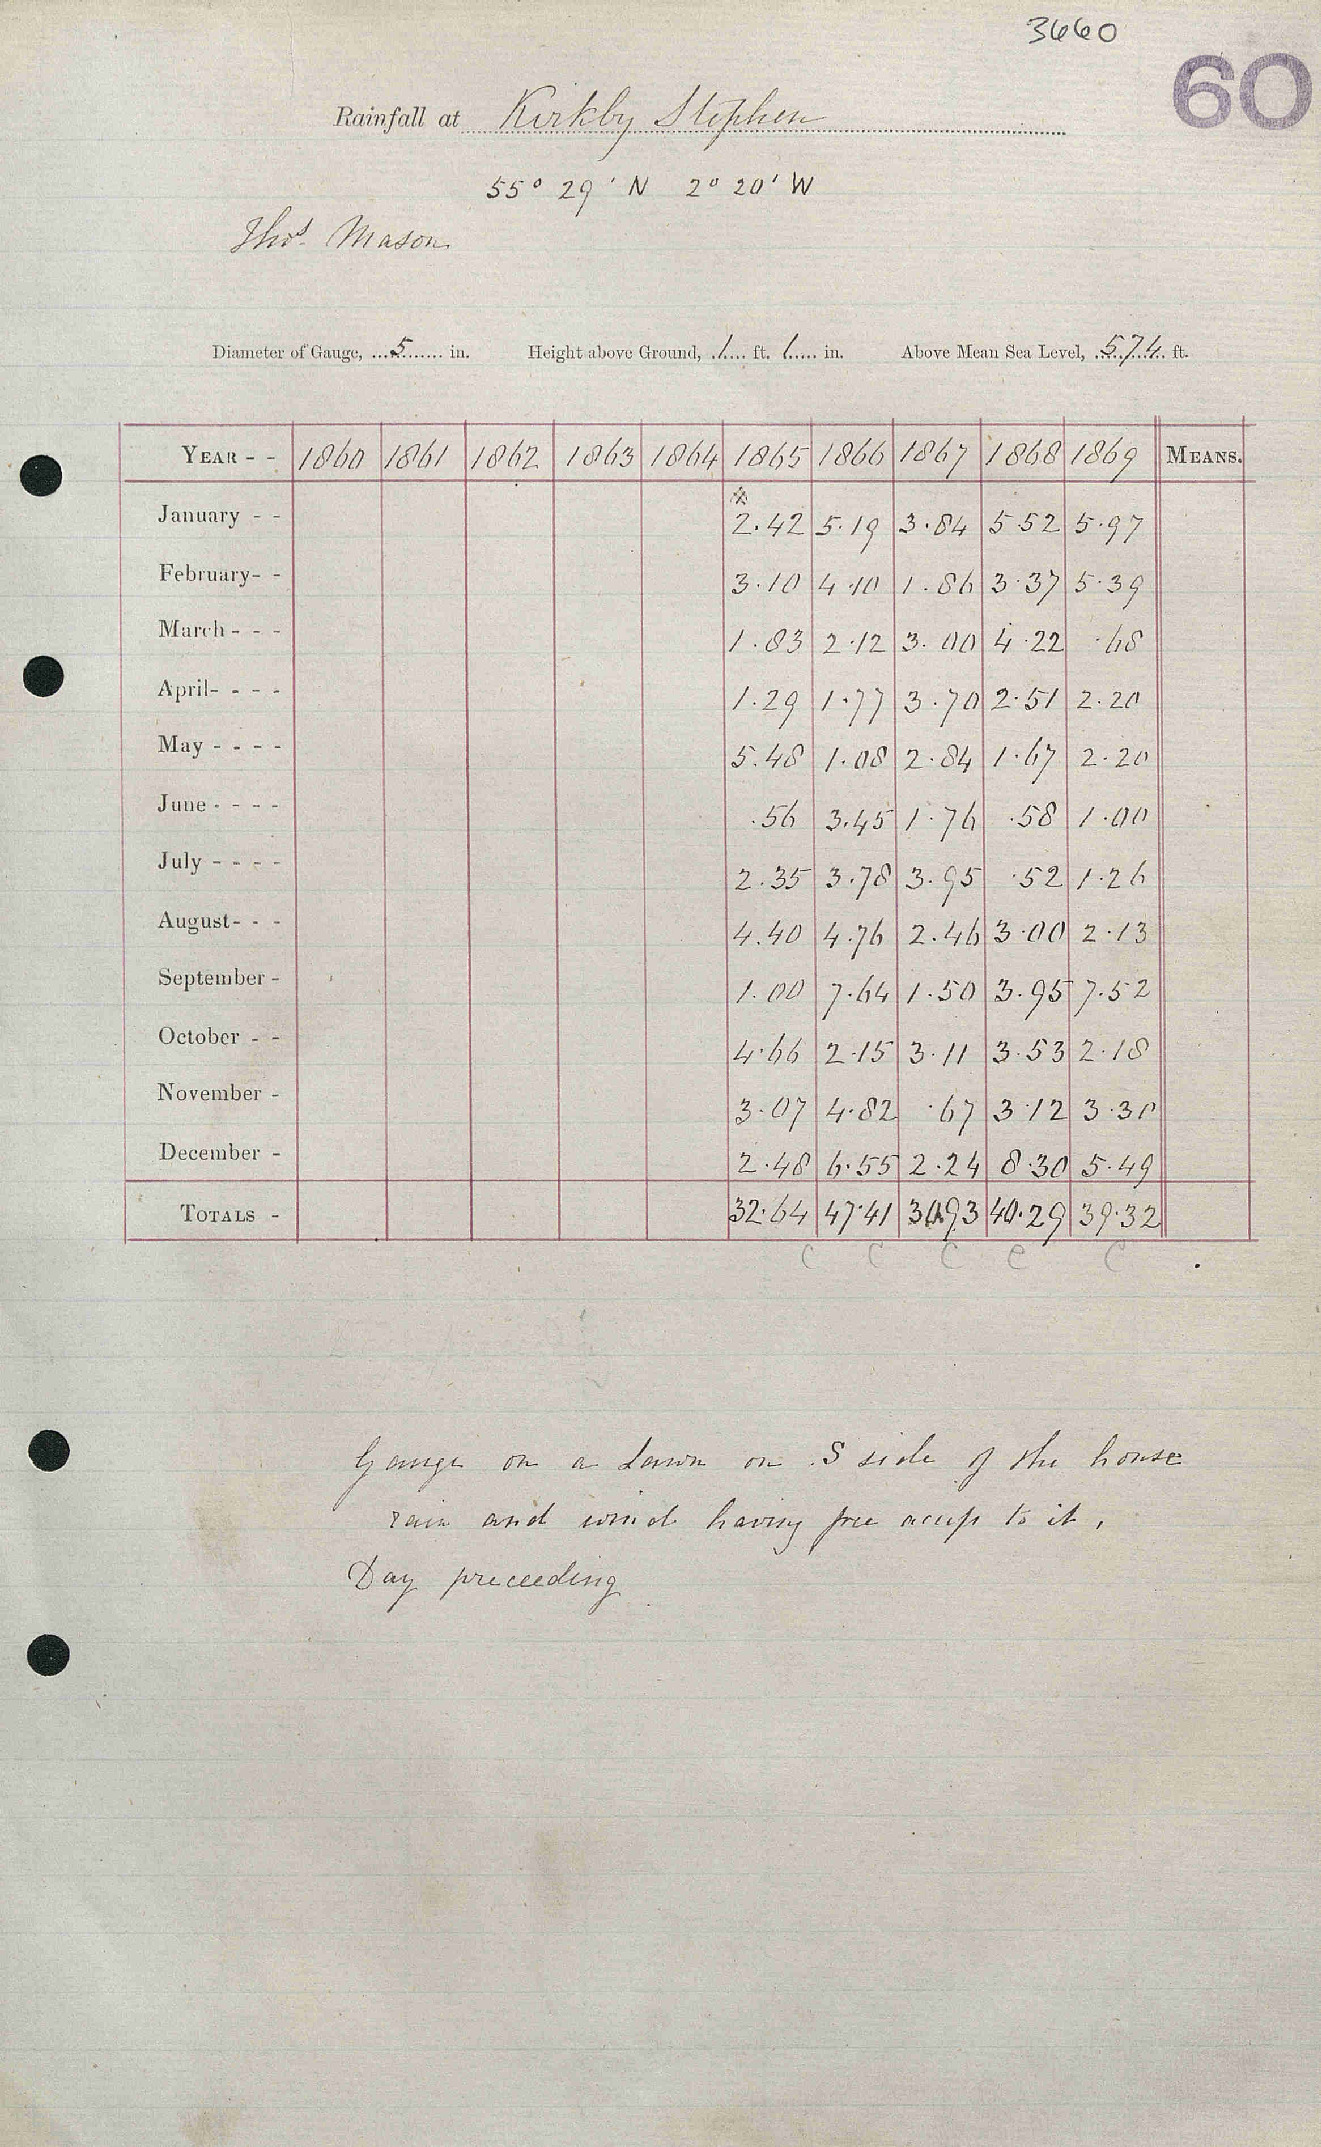 3660
60
Rainfall at Kirkby Stephen
55° 29' N 2° 20' W
Thos. Mason
Diameter of Gauge, 5 in. Height above Ground, 1 ft. 1 in. Above Mean Sea Level, 574 ft.
YEAR - - 1860 1861 1862 1863 1864 1865 1866 1867 1868 1869 MEANS.
January - - 2.42 5.19 3.84 5.52 5.97
February- - 3.10 4.10 1.86 3.37 5.39
March - - - 1.83 2.12 3.00 4.22 .68
April- - - - 1.29 1.77 3.70 2.51 2.20
May - - - - 5.48 1.08 2.84 1.67 2.20
June - - - - .56 3.45 1.76 .58 1.00
July - - - - 2.35 3.78 3.95 .52 1.26
August- - - 4.40 4.76 2.46 3.00 2.13
September - 1.00 7.64 1.50 3.95 7.52
October - - 4.66 2.15 3.11 3.53 2.18
November - 3.07 4.82 .67 3.12 3.30
December - 2.48 6.55 2.24 8.30 5.49
TOTALS - 32.64 47.41 30.93 40.29 39.32
C C C C C
Gauge on a Lawn on S side of the house
rain and wind having free access to it,
Day preceeding